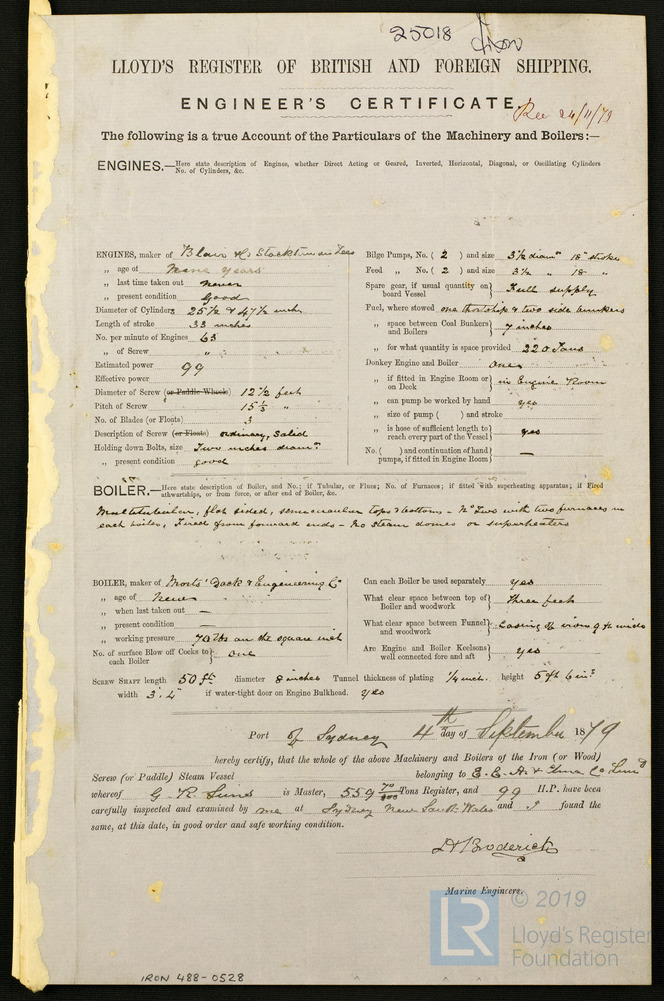 25018 Iron
LLOYD'S REGISTER OF BRITISH AND FOREIGN SHIPPING.
ENGINEER'S CERTIFICATE.
Rec 24/11/79
The following is a true Account of the Particulars of the Machinery and Boilers:—
ENGINES.—Here state description of Engines, whether Direct Acting or Geared, Inverted, Horizontal, Diagonal, or Oscillating Cylinders
No. of Cylinders, &c.
ENGINES, maker of Blair & Co Stockton on Tees
„ age of Nine years
„ last time taken out never
„ present condition Good
Diameter of Cylinders 25½ & 47½ inch
Length of stroke 33 inches
No. per minute of Engines 63
„ of Screw „
Estimated power 99
Effective power
Diameter of Screw (or Paddle Wheels) 12½ feet
Pitch of Screw 15½ „
No. of Blades (or Floats) 3
Description of Screw (or Floats) ordinary, solid
Holding down Bolts, size Two inches diamr.
„ present condition good
Bilge Pumps, No. ( 2 ) and size 3½ diamr 18" stroke
Feed „ No. ( 2 ) and size 3½ „ 18 „
Spare gear, if usual quantity on
board Vessel Full supply
Fuel, where stowed one thortship & two side bunkers
„ space between Coal Bunkers
and Boilers 7 inches
„ for what quantity is space provided 220 Tons
Donkey Engine and Boiler One
„ if fitted in Engine Room or
on Deck in Engine Room
„ can pump be worked by hand yes
„ size of pump ( ) and stroke
„ is hose of sufficient length to
reach every part of the Vessel yes
No. ( ) and continuation of hand
pumps, if fitted in Engine Room —
BOILER.—Here state description of Boiler, and No.; if Tubular, or Flues; No. of Furnaces; if fitted with superheating apparatus; if Fired
athwartships, or from force, or after end of Boiler, &c.
Multitubular, flat sided, semicircular tops & bottoms - No Two with two furnaces in
each boiler, Fired from forward ends - No steam domes or superheaters
BOILER, maker of Morts' Dock & Engineering Co
„ age of New
„ when last taken out —
„ present condition —
„ working pressure 70 lbs on the square inch
No. of surface Blow off Cocks to
each Boiler one
Can each Boiler be used separately yes
What clear space between top of
Boiler and woodwork Three feet
What clear space between Funnel
and woodwork Casing of iron 9 ft wide
Are Engine and Boiler Keelsons
well connected fore and aft yes
SCREW SHAFT length 50 ft diameter 8 inches Tunnel thickness of plating ¼ inch. height 5 ft 6 ins
width 3.4" if water-tight door on Engine Bulkhead. yes
Port of Sydney 4th day of September 1879
hereby certify, that the whole of the above Machinery and Boilers of the Iron (or Wood)
Screw (or Paddle) Steam Vessel belonging to E. & A. & China Co Limd
whereof G. R. is Master, 559 70/100 Tons Register, and 99 H.P. have been
carefully inspected and examined by me at Sydney New South Wales and I found the
same, at this date, in good order and safe working condition.
D Broderick
Marine Engineers.
IRON 488-0528
LR
© 2019
Lloyd's Register
Foundation